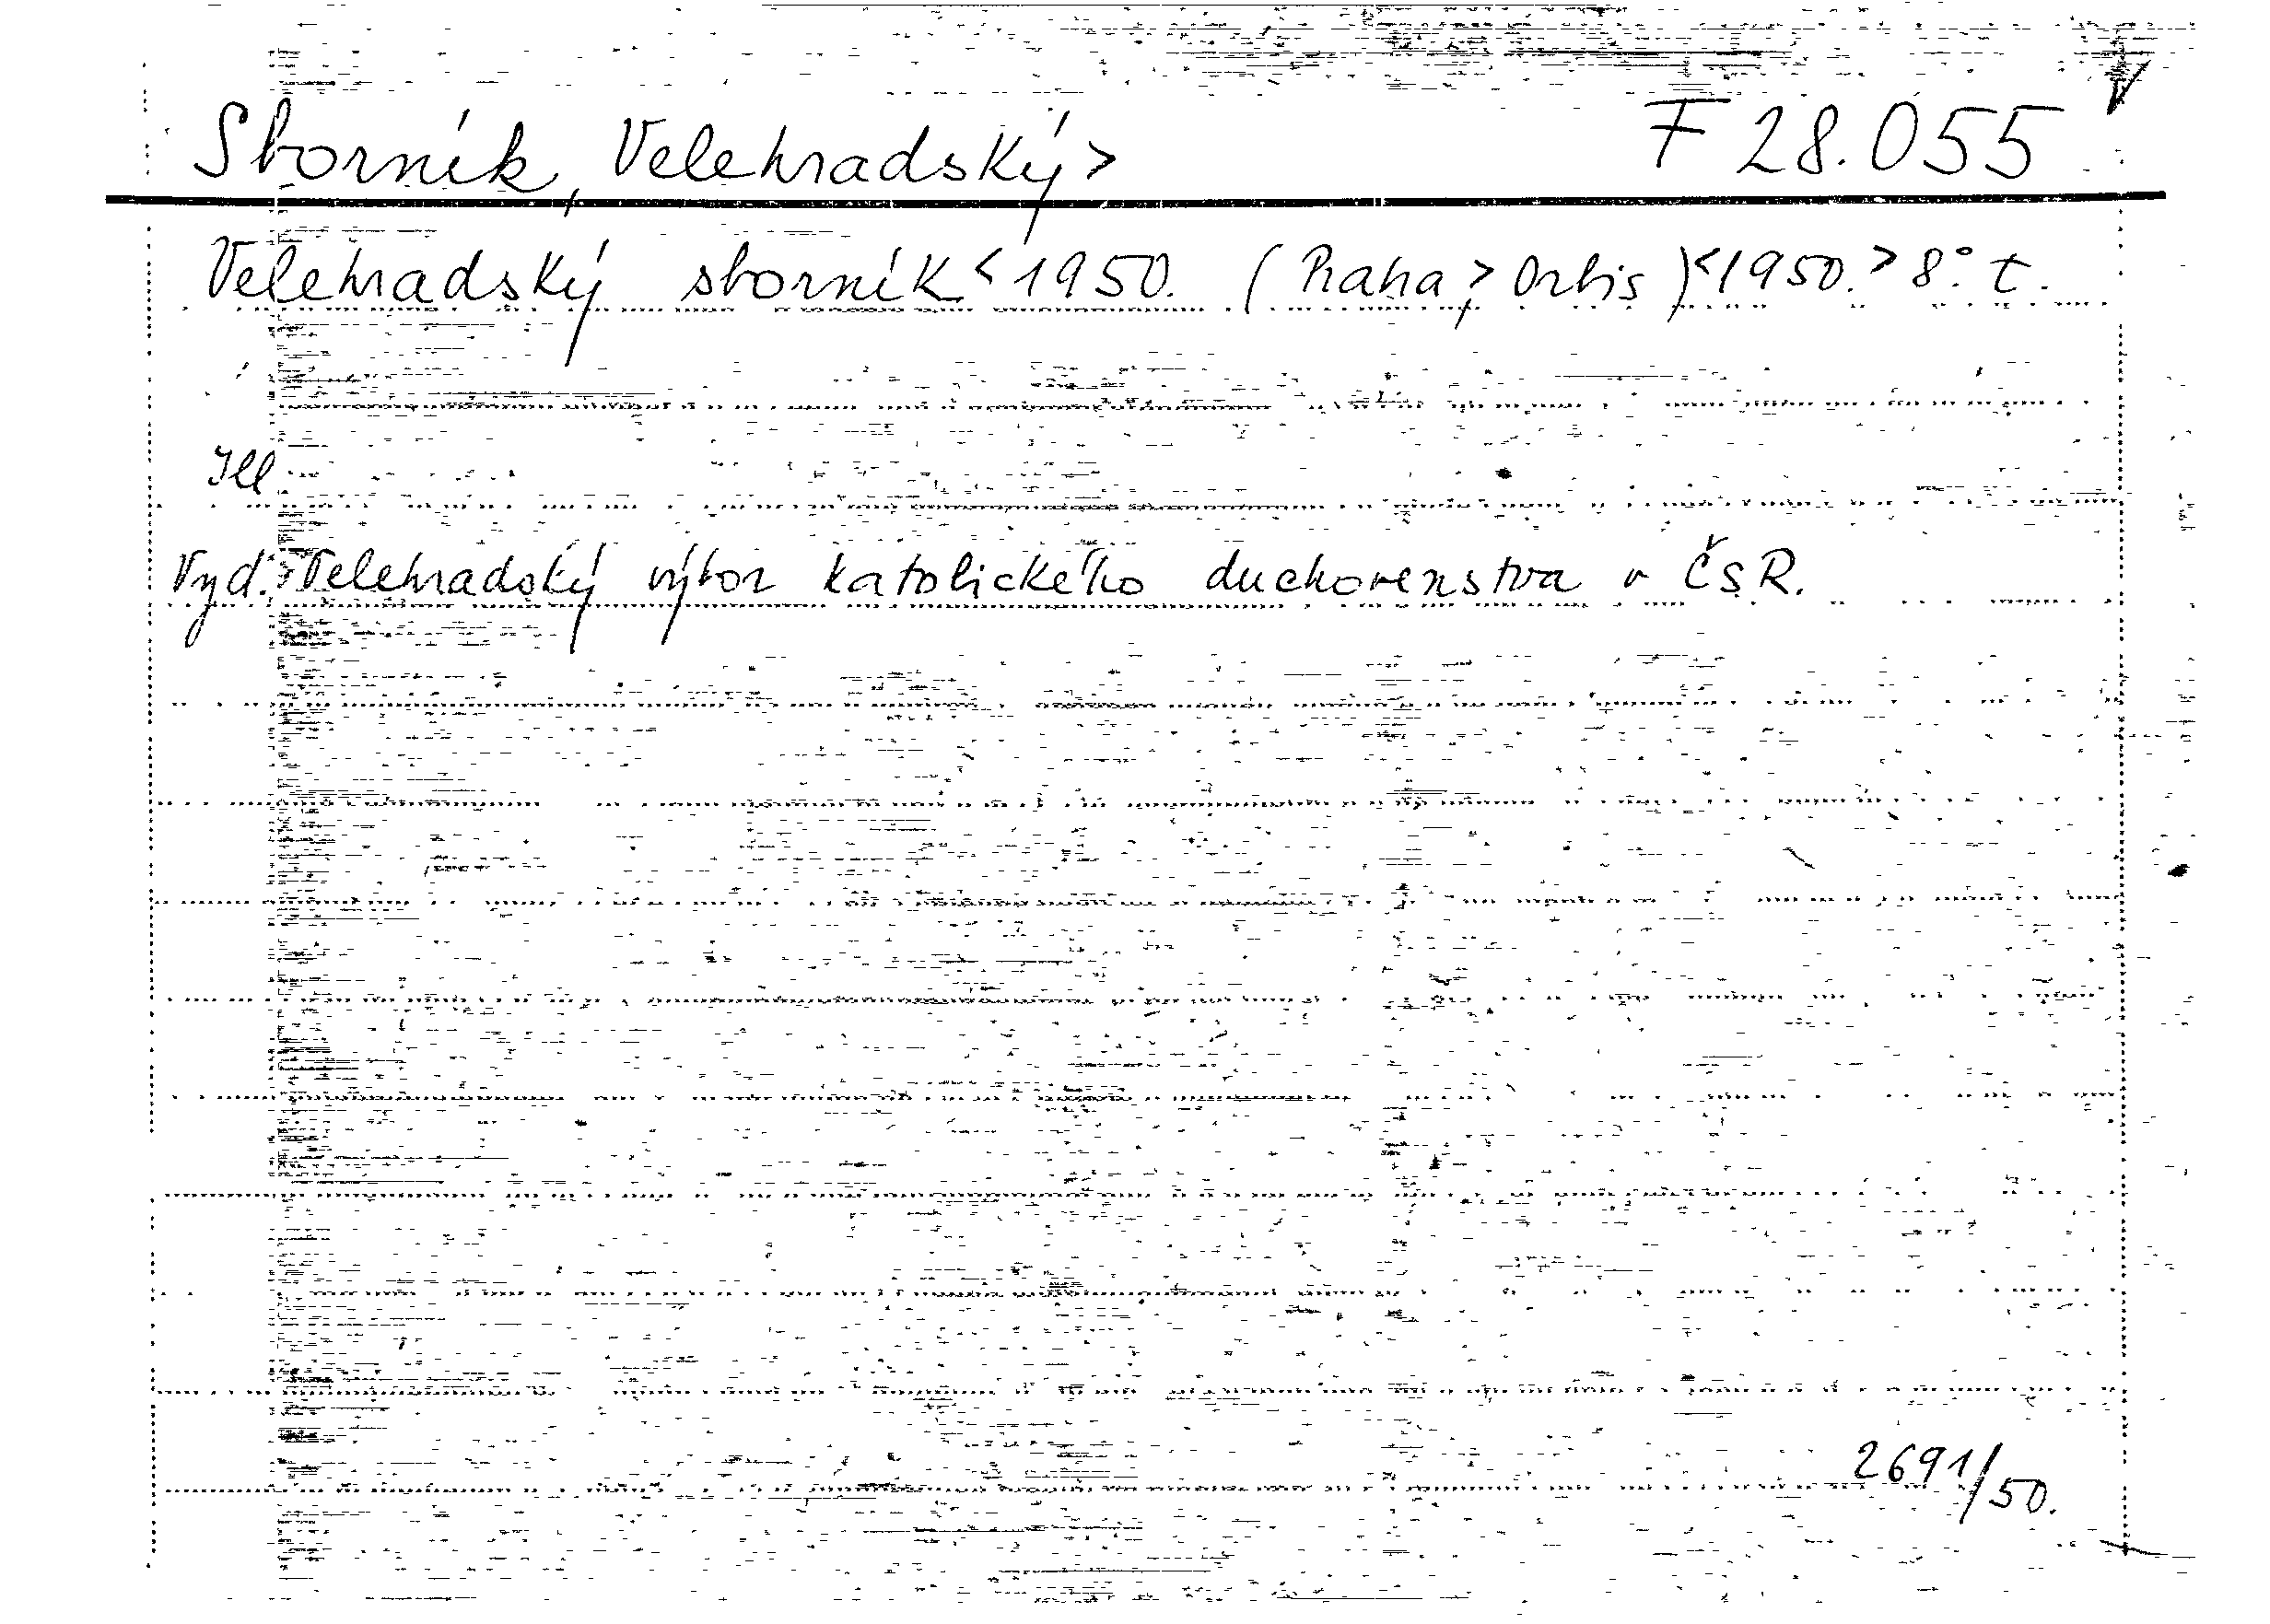 Sborník, Velehradský> F 28.055
Velehradský sborník <1950. (Praha,> Orbis)<1950.> 8°. t.
Ill
Vyd.: Velehradský výbor katolického duchovenstva v ČSR.
2691/50.